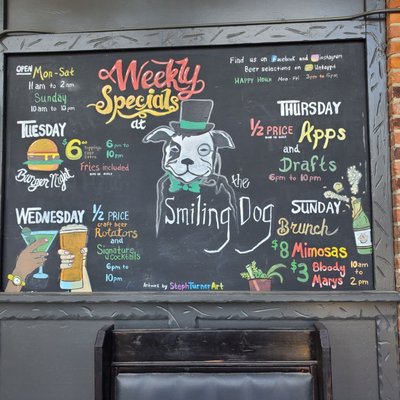 OPEN Mon-Sat
11am to 2am
Sunday
10am to 10pm
Weekly
Specials
at
Find us on Facebook and Instagram
Beer selections on Untappd
HAPPY HOUR Mon-Fri 3pm to 6pm
TUESDAY
$6
toppings
cost
extra
6pm
to
10pm
Fries included
Burger Night
THURSDAY
1/2 PRICE Apps
and
Drafts
6pm to 10pm
the
Smiling Dog
WEDNESDAY
1/2 PRICE
craft beer
Rotators
and
Signature
Cocktails
6pm to
10pm
SUNDAY
Brunch
$8 Mimosas
$3 Bloody
Marys
10am
to
2pm
Artwork by StephTurnerArt